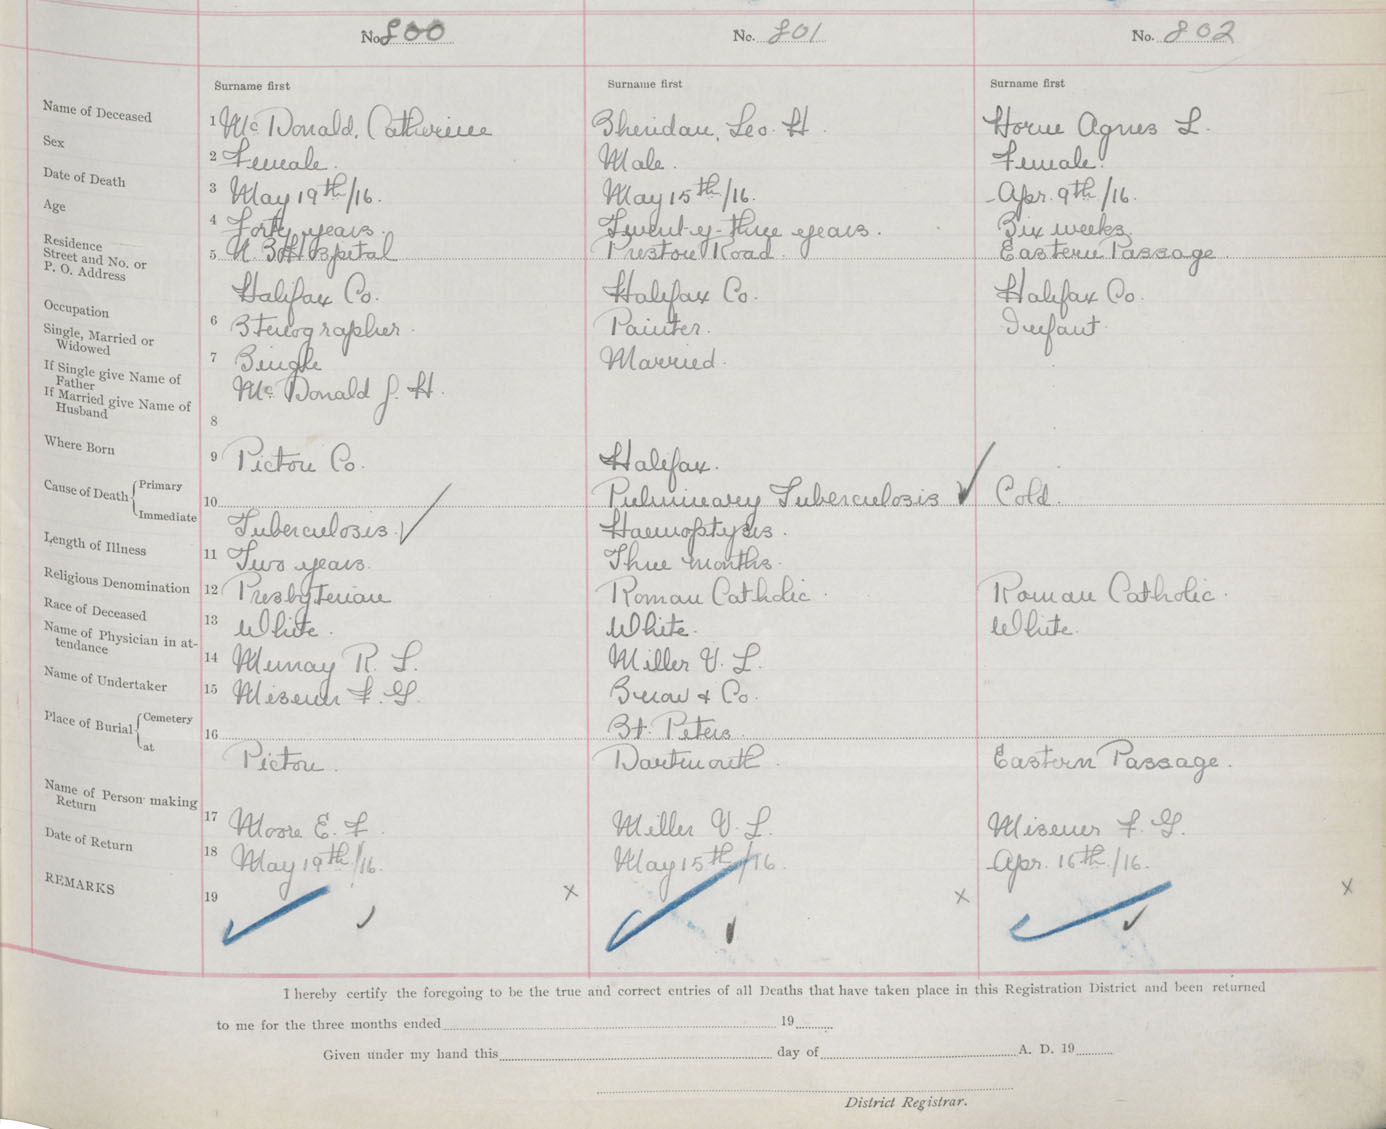 No. 800 No. 801 No. 802
Surname first Surname first Surname first
Name of Deceased 1 McDonald, Catherine Sheridan, Leo. H. Horne Agnes L.
Sex 2 Female. Male. Female.
Date of Death 3 May 19th/16. May 15th/16. Apr. 9th/16.
Age 4 Forty years. Twenty-three years. Six weeks.
Residence
Street and No. or 5 N. S. Hospital Preston Road. Eastern Passage.
P. O. Address
Halifax Co. Halifax Co. Halifax Co.
Occupation 6 Stenographer. Painter. Infant.
Single, Married or
Widowed 7 Single Married.
If Single give Name of
Father McDonald J. H.
If Married give Name of
Husband 8
Where Born 9 Pictou Co. Halifax.
Cause of Death Primary 10 Pulminary Tuberculosis Cold.
Immediate Tuberculosis. Haemoptysis.
Length of Illness 11 Two years. Three months.
Religious Denomination 12 Presbyterian Roman Catholic. Roman Catholic.
Race of Deceased 13 White. White. White.
Name of Physician in at-
tendance 14 Murray R. L. Miller V. L.
Name of Undertaker 15 Misener F. G. Snow & Co.
Place of Burial Cemetery 16 St. Peters.
at Pictou. Dartmouth. Eastern Passage.
Name of Person making
Return 17 Moore E. F. Miller V. L. Misener F. G.
Date of Return 18 May 19th/16. May 15th/16. Apr. 16th/16.
REMARKS 19 x x x
I hereby certify the foregoing to be the true and correct entries of all Deaths that have taken place in this Registration District and been returned
to me for the three months ended 19
Given under my hand this day of A. D. 19
District Registrar.